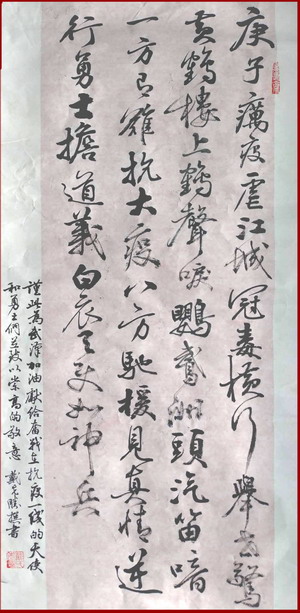 庚子癘疫虐江城冠毒横行舉世驚
黄鶴樓上鶴聲唳鸚鵡洲頭汽笛喑
一方有難抗大疫八方馳援見真情逆
行勇士擔道義白衣天使如神兵
謹此為武漢加油獻給奮戰在抗疫一綫的天使
和勇士們並致以崇高的敬意 戴 撰書